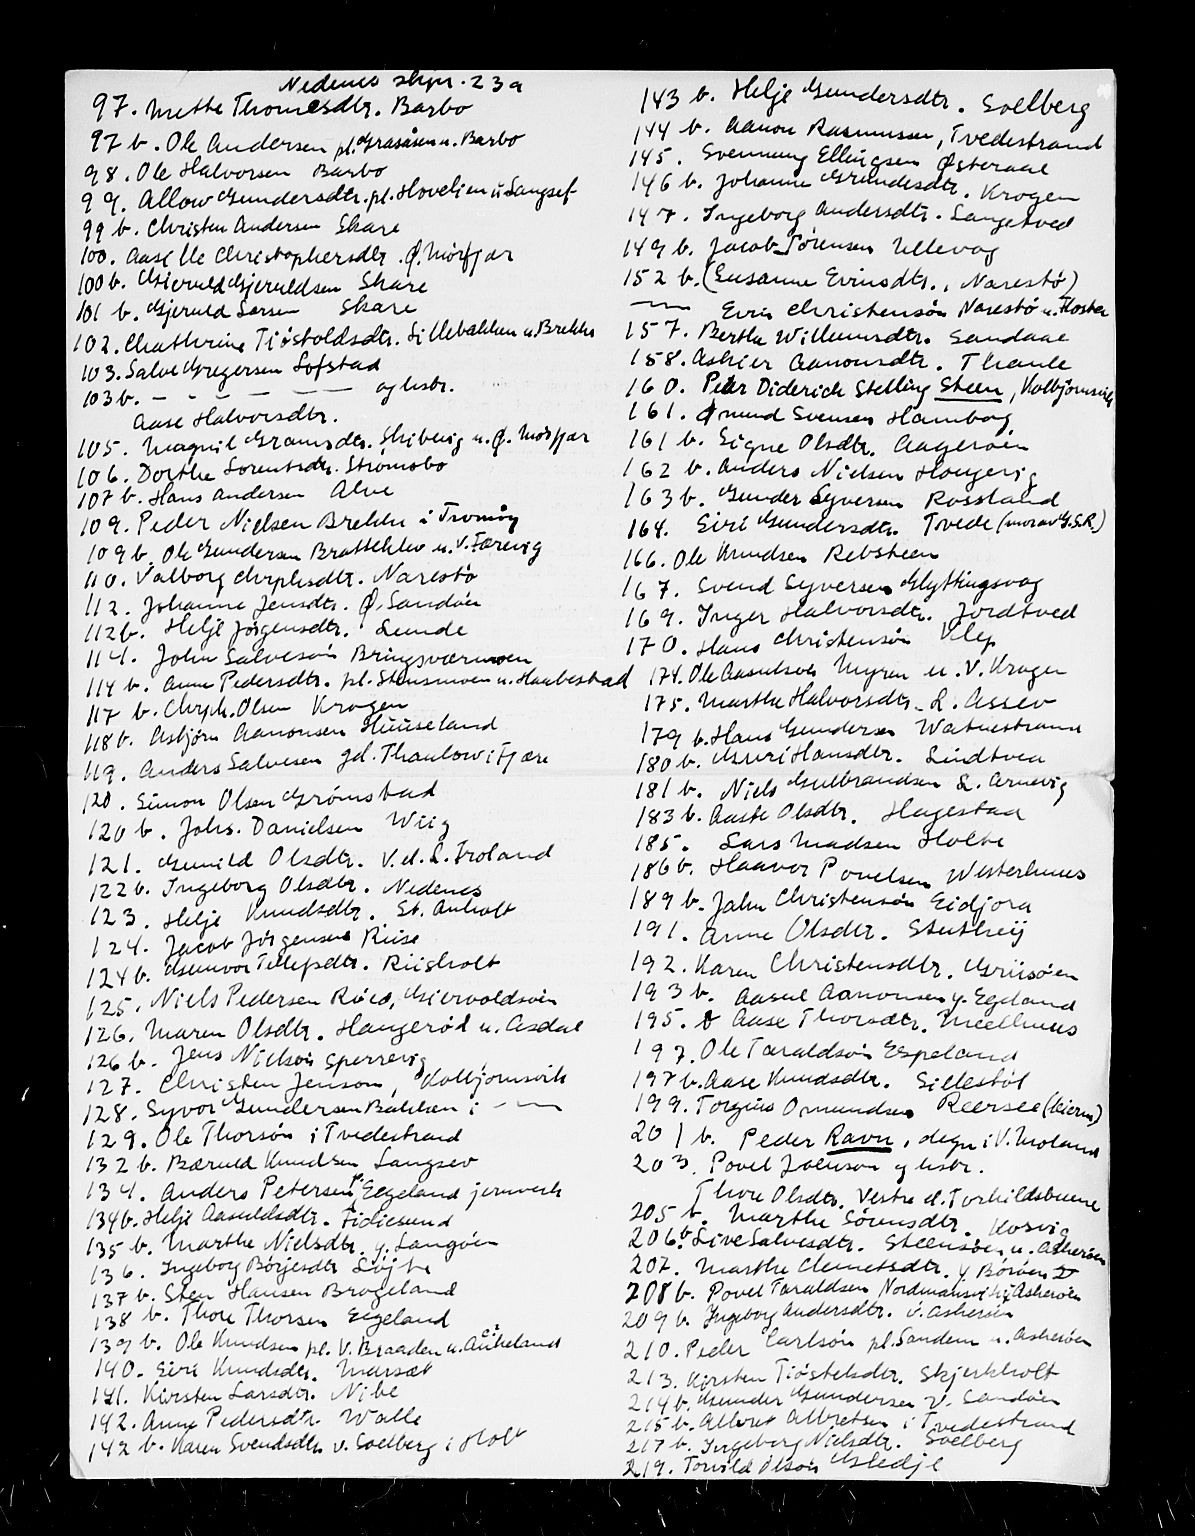 Nedenes skpr. 23a
97. Mette Thomesdtr. Barbo
97 b. Ole Andersen pl. Grasåsen u. Barbo
98. Ole Halvorsen Barbo
99. Allow Gundersdtr. pl. Hovelien u Langsef
99 b. Christen Andersen Skare
100. Aase Ole Christophersdtr. Ø. Mörfjær
100 b. Gieruld Gjeruldsen Skare
101 b. Gjeruld Larsen Skare
102. Chathrine Tiöstoldsdtr. Lillebækken u. Brekke
103. Salve Gregersen Lofstad
103 b. - - - - — og hstr.
Aase Halvorsdtr.
105. Magnil Gramsdtr. Skibvig u. Ø. Mörfjær
106. Dorthe Lorentsdtr. Strømsbo
107 b. Hans Andersen Alve
109. Peder Nielsen Brekke i Tromøy
109 b. Ole Gundersen Bratteklev u. V. Færevig
110. Valborg Chrphsdtr. Narestø
112. Johanne Jensdtr. Ø. Sandøen
112 b. Helje Jörgensdtr. Lunde
114. John Salvesön Bringsværmoen
114 b. Anne Pedersdtr. pl. Stensmoen u. Haabestad
117 b. Chrph. Olsen Krogen
118 b. Asbjørn Aanonsen Huuseland
119. Anders Salvesen gd. Thaulow i Fjære
120. Simon Olsen Grömstad
120 b. Johs. Danielsen Wiig
121. Gunild Olsdtr. V. d. L. Froland
122 b. Ingeborg Olsdtr. Nedenes
123. Helje Knudsdtr. St. Anholt
124. Jacob Jörgensen Riise
124 b. Gunvor Tellefsdtr. Riisholt
125. Niels Pedersen Riicö, Giervoldsöen
126. Maren Olsdtr. Haugeröd u. Asdal
126 b. Jens Nielsön Sperrevig
127. Christen Jensen, Kolbjornsvik
128. Syvor Gundersen Bakken i - —
129. Ole Thorsön i Tvedestrand
132 b. Bæruld Knudsen Langsev
134. Anders Petersen, Eegeland jernverk
134 b. Helje Aasuldsdtr. Fidiesund
135 b. Marthe Nielsdtr. y. Langøen
136. Ingebog Börjesdtr Löjte
137 b. Sten Hansen Brogeland
138 b. Thore Thorsen Egeland
139 b. Ole Knudsen pl. V. Braaden u. Aukeland
140. Siri Knudsdtr. Marsæt
141. Kirsten Larsdtr. Nibe
142. Anne Pedersdtr Walle
142 b. Karen Svendsdtr v. Soelberg i Holt
143 b. Helje Gundersdtr. Soelberg
144 b. Aanon Rasmussen, Tvedestrand
145. Svennung Ellingsen Østeraae
146 b. Johanne Gundersdtr. Krogen
147. Ingeborg Andersdtr. Langetved
149 b. Jacob Sörensen Ullevog
152 b. (Susanne Evinsdtr., Narestø)
— Evin Christensön Narestø u. Flosta
157. Berthe Willumsdtr. Sandaae
158. Askier Aanonsdtr. Thaule
160. Peter Diderich Stelling Steen, Kolbjørnsvig
161. Ømund Svensen Hamborg
161 b. Signe Olsdtr. Aagerøen
162 b. Anders Nielsen Hougerig
163 b. Gunder Syversen Rossland
164. Siri Gundersdtr. Tvede (mor av G.S.R.)
166. Ole Knudsen Rebsteen
167. Svend Syversen Glyttingsvog
169. Inger Halvorsdtr. Jordtved
170. Hans Christensön Klep
174. Ole Aasulsön Myren u. V. Krogen
175. Marthe Halvorsdtr. L. Assev
179 b. Hans Gundersen Watnestrand
180 b. Guri Hansdtr. Lindtvea
181 b. Niels Gulbrandsen L. Arnevig
183 b. Aaste Olsdtr. Hagestad
185. Lars Madsen Holte
186 b. Haavor Povelsen Westerhuus
189 b. John Christensön Eidjora
191. Anne Olsdtr. Stutheij
192. Karen Christensdtr. Griisöen
193 b. Aasul Aanonsen y. Egeland
195. Aase Thorsdtr. Meelhuus
197. Ole Taraldsön Espeland
197 b. Aase Knudsdtr. Sillestöl
199. Torgius Omundsen Reersee (Hierm)
201 b. Peder Ravn, degn i V. Moland
203. Povel Joensson og hstr.
Thore Olsdtr. Vestre d. Torkildsbuene
205 b. Marthe Sörensdtr. Kosvig
206 b. Live Salvesdtr. Steensöen u. Askerøen
207. Marthe Clemetsdtr. y Börøen
208 b. Povel Taraldsen Nordmansvik, Askerøen
209 b. Ingeborg Andersdtr. V. Askerøen
210. Peder Carlsön pl. Sanden u. Askerøen
213. Kirsten Tiöstelsdtr. Skjerkholt
214 b. Gunder Gundersen V. Sandøen
215 b. Albret Albretsen i Tvedestrand
217 b. Ingeborg Nielsdtr. Soelberg
219. Torvild Olsön Gliedje